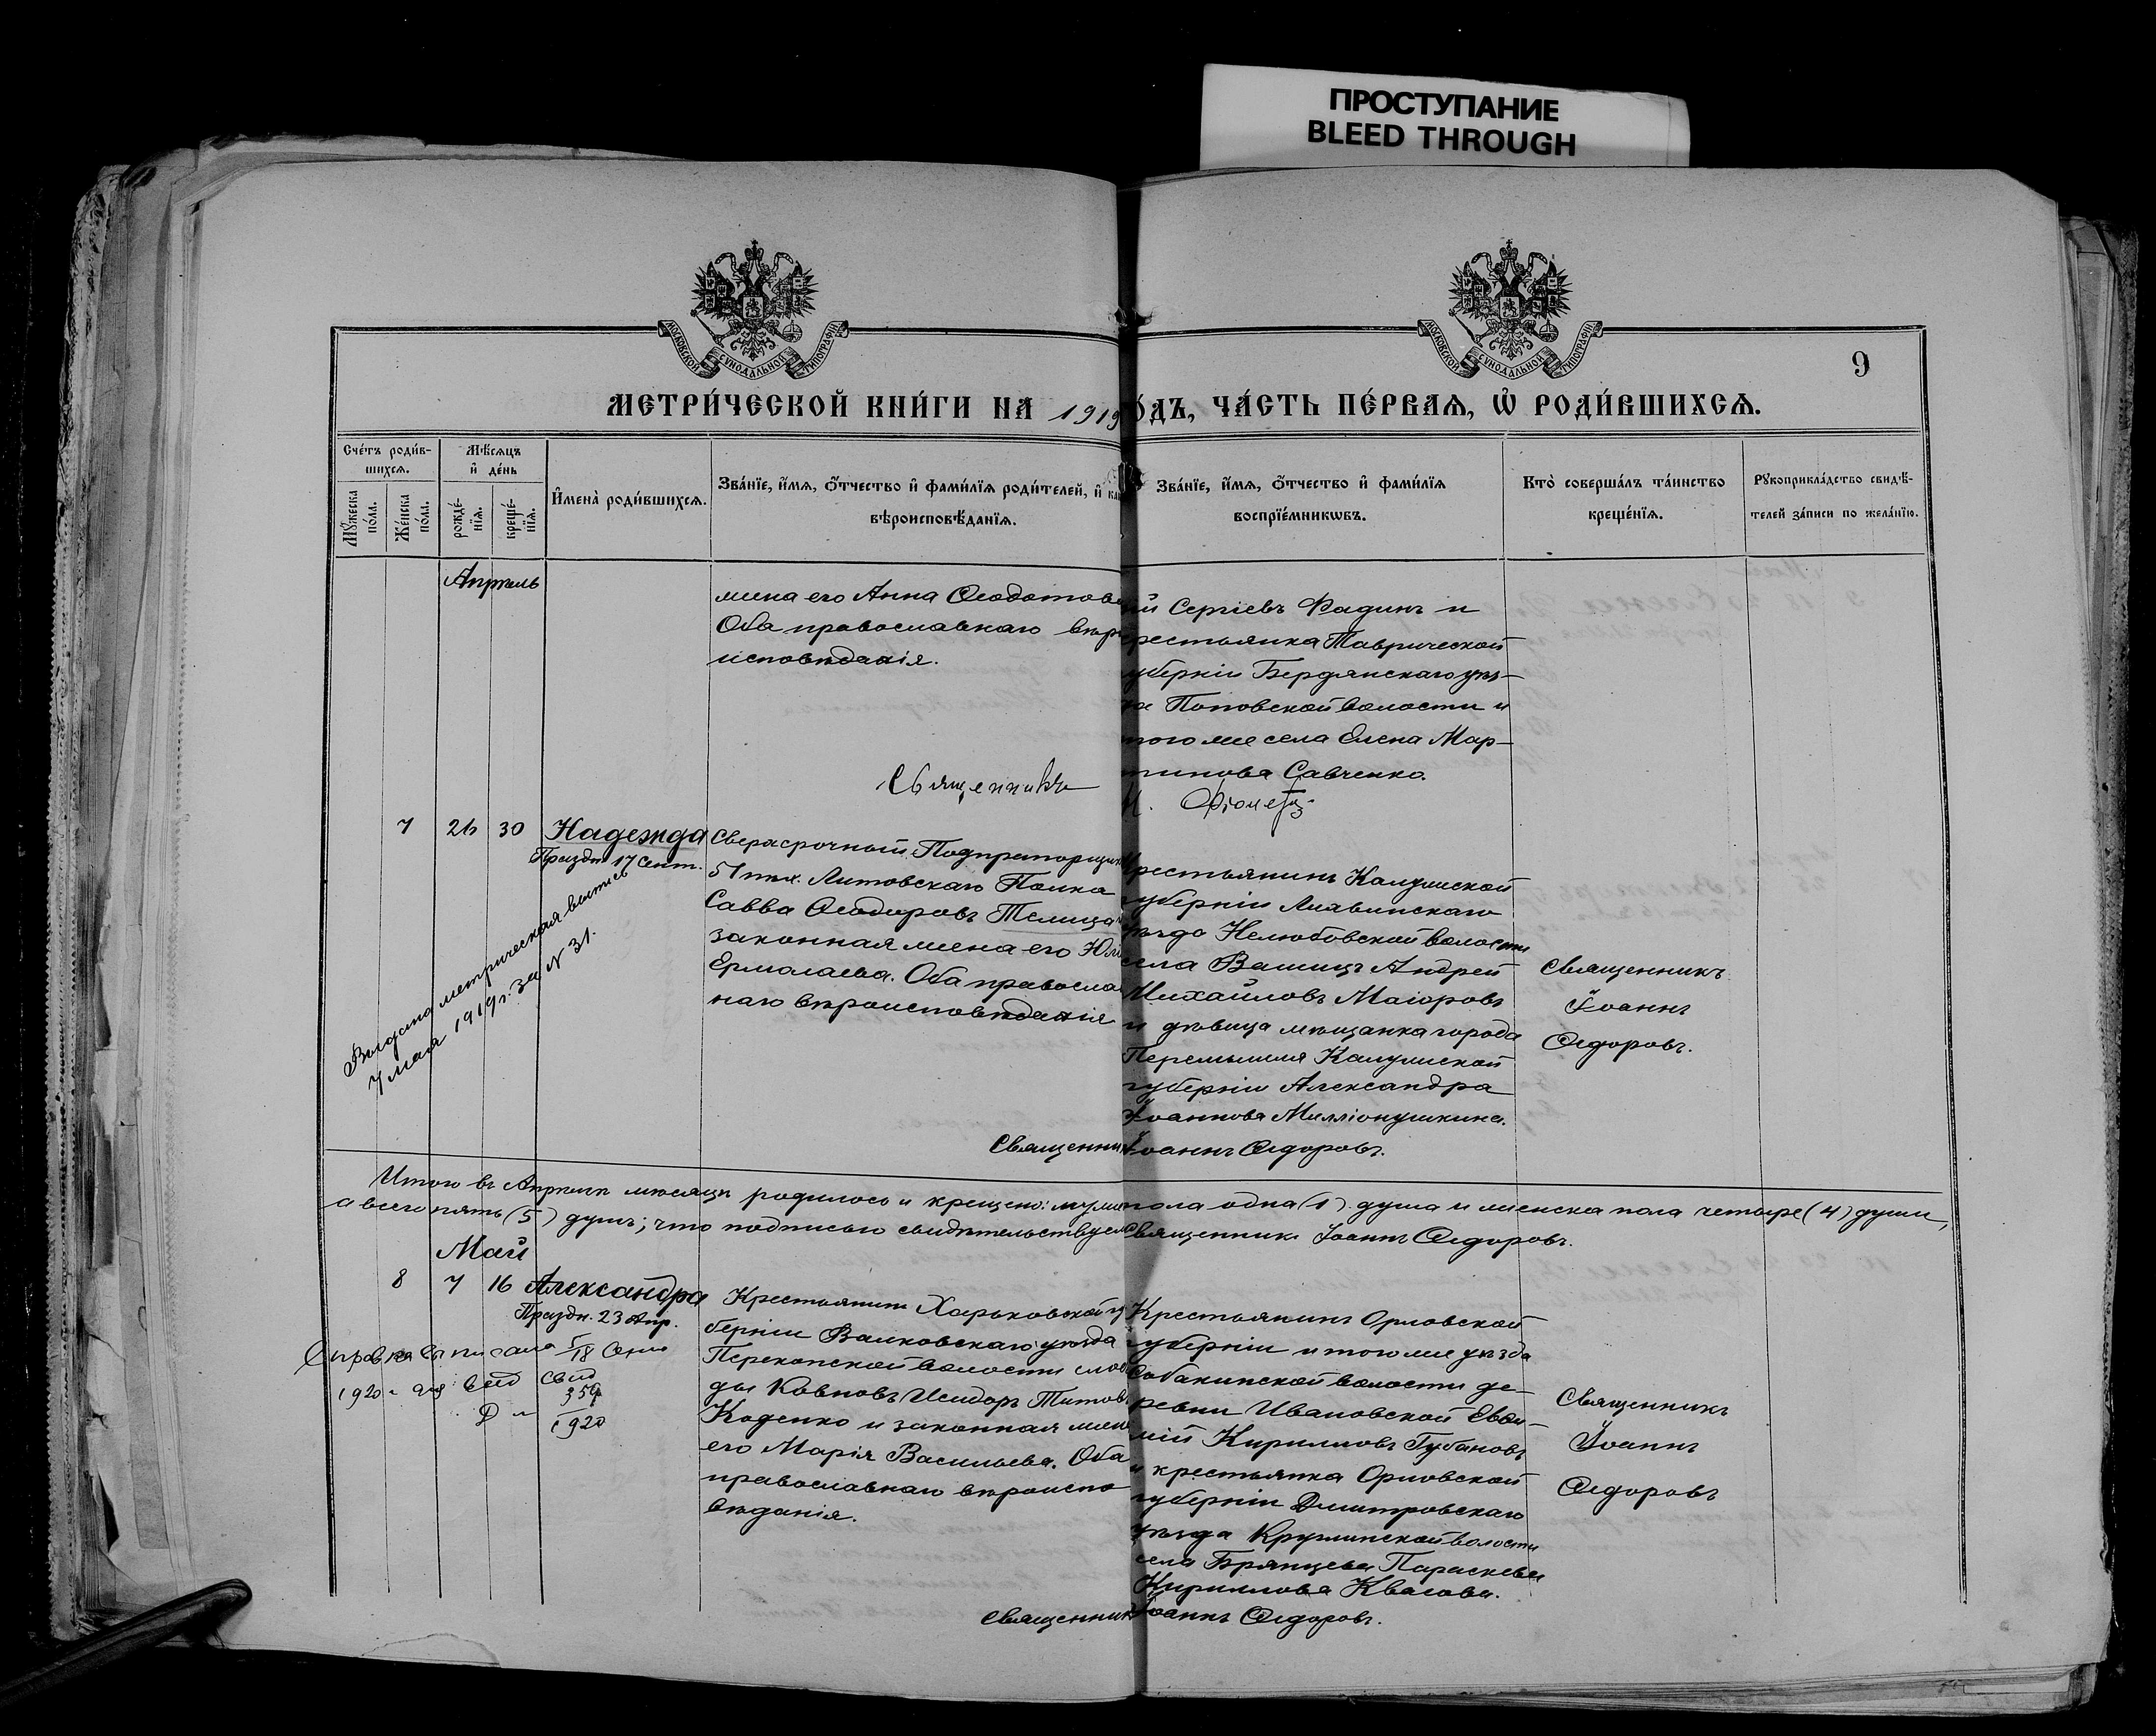 ПРОСТУПАНИЕ
BLEED THROUGH
МОСКОВСКОЙ СѴНОДАЛЬНОЙ ТИПОГРАФІИ
МОСКОВСКОЙ СѴНОДАЛЬНОЙ ТИПОГРАФІИ
9
МЕТРИ́ЧЕСКОЙ КНИ́ГИ НА 1919
ОДЪ, ЧА́СТЬ ПЕ́РВАѦ, Ѡ РОДИ́ВШИХСѦ.
Сче́тъ роди́в-
шихсѧ.
Мѣ́сѧцъ
и҆ де́нь
Мꙋ́жеска
по́ла.
Же́нска
по́ла.
рожде́-
нїѧ.
креще́-
нїѧ.
И҆мена̀ роди́вшихсѧ.
Зва́нїе, и҆́мѧ, ѻ҆́тчество и҆ фами́лїѧ роди́телей, и҆ ка
вѣроисповѣ́данїѧ.
Зва́нїе, и҆́мѧ, ѻ҆́тчество и҆ фами́лїѧ
воспрїе́мникѡвъ.
Кто̀ соверша́лъ та́инство
креще́нїѧ.
Рꙋкоприкла́дство свидѣ́-
телей за́писи по жела́нїю.
Апрѣль
жена его Анна Ѳеодотова
Оба православнаго вѣро
исповѣданія.
Священникъ
ій Сергіевъ Фадинъ и
крестьянка Таврической
губерніи Бердянскаго уѣз-
да Поповской волости и
того же села Елена Мар-
тинова Савченко.
7 26 30 Надежда
Праздн. 17 Сент.
Выдана метрическая выпись
7 мая 1919 г. за № 31.
Сверхсрочный Подпрапорщик
51 пех. Литовскаго Полка
Савва Ѳеодоровъ Телица
законная жена его Юлі
Ермолаева. Оба правосла
наго вѣроисповѣданія
Крестьянинъ Калужской
губерніи Лихвинскаго
уѣзда Нелюбовской волости
села Андрей
Михайловъ Маіоровъ
и дѣвица мѣщанка города
Перемышля Калужской
губерніи Александра
Іоаннова Милліонушкина.
Священникъ
Іоаннъ
Ѳедоровъ.
Священник Іоаннъ Ѳедоровъ.
Итого въ Апрѣлѣ мѣсяцѣ родилось и крещено: муже пола одна (1) душа и женска пола четыре (4) души,
а всего пять (5) душъ; что подписью свидѣтельствуем Священникъ Іоаннъ Ѳедоровъ.
Май
8 7 16 Александра
Праздн. 23 Апр.
Справка 18
1920
359
1920
Крестьянинъ Харьковской гу
берніи Валковскаго уѣзда
Перекопской волости сло
ды Ковповъ Исидоръ Титов
Коденко и законная жена
его Марія Васильева. Оба
православнаго вѣроиспо
вѣданія.
Крестьянинъ Орловской
губерніи и того же уѣзда
Собакинской волости де-
ревни Ивановской Евѳи-
мій Кирилловъ Губановъ
и крестьянка Орловской
губерніи Дмитровскаго
уѣзда Круглинской волости
села Брянцева Параскева
Кириллова Квасова.
Священникъ
Іоаннъ
Ѳедоровъ
Священник Іоаннъ Ѳедоровъ.